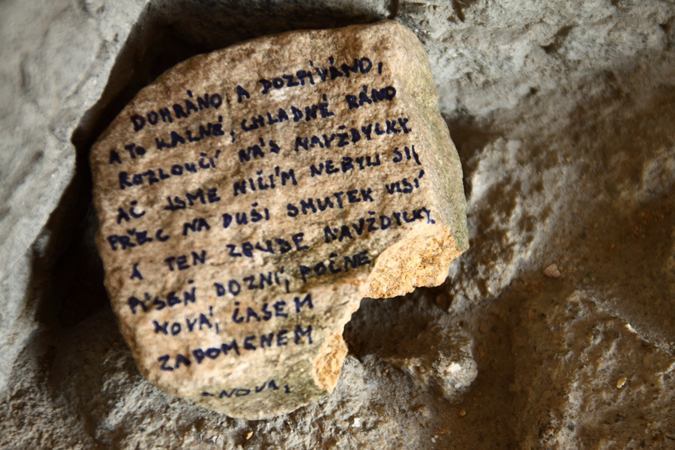 DOHRÁNO, A DOZPÍVÁNO,
A TO KALNÉ, CHLADNÉ RÁNO
ROZLOUČÍ NÁS NAVŽDYCKY
AČ JSME NIČÍM NEBYLI SI,
PŘEC NA DUŠI SMUTEK VISÍ
A TEN ZBUDE NAVŽDYCKY.
PÍSEŇ DOZNÍ, POČNE
NOVÁ, ČASEM
ZAPOMENEM